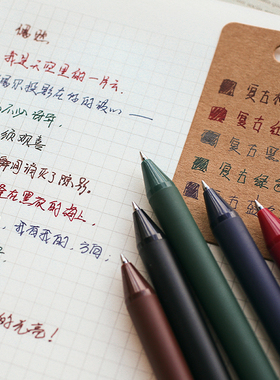 偶然
我是天空里的一片云
偶尔投影在你的波心——
不必讶异
须欢喜
瞬间消灭了踪影。
逢在黑夜的海上，
我有我的，方向，
的光亮！
复古棕
复古红
复古
复古绿
复古蓝